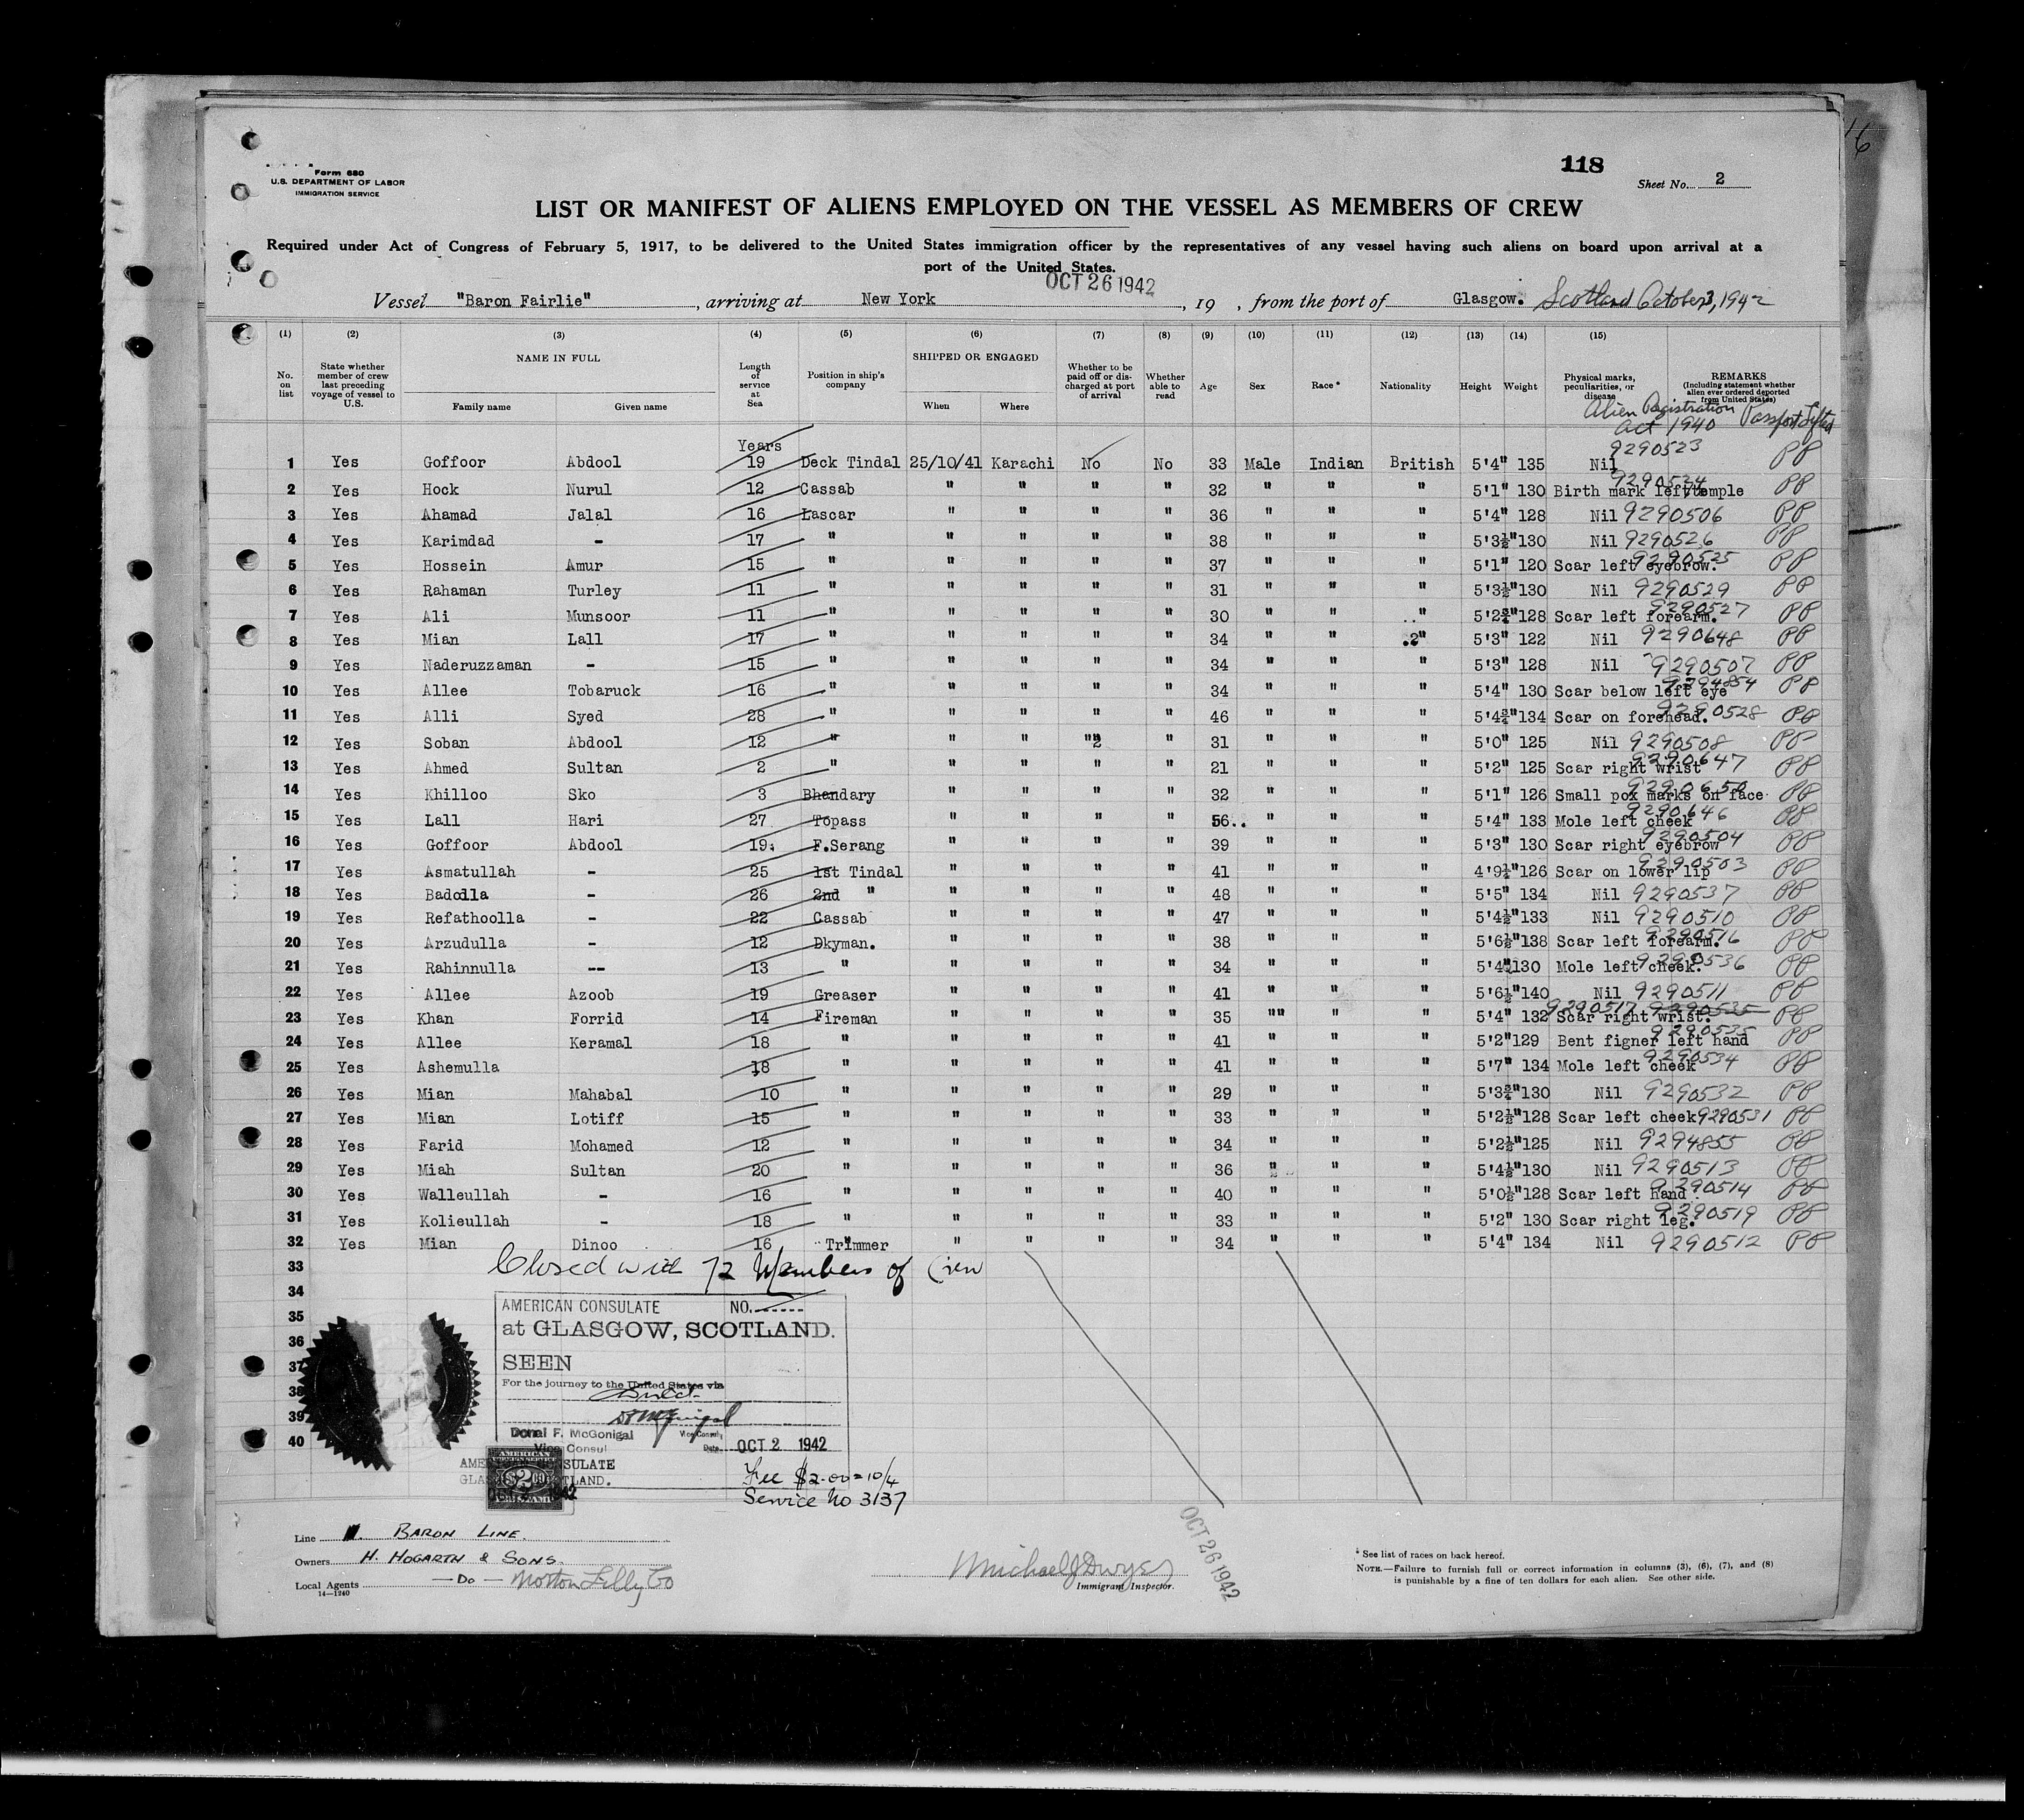 118
Form 680
U.S. DEPARTMENT OF LABOR
IMMIGRATION SERVICE
Sheet No. 2
LIST OR MANIFEST OF ALIENS EMPLOYED ON THE VESSEL AS MEMBERS OF CREW
Required under Act of Congress of February 5, 1917, to be delivered to the United States immigration officer by the representatives of any vessel having such aliens on board upon arrival at a
port of the United States.
OCT 26 1942
Vessel "Baron Fairlie", arriving at New York, 19 , from the port of Glasgow. Scotland October 3, 1942
(1) (2) (3) (4) (5) (6) (7) (8) (9) (10) (11) (12) (13) (14) (15)
No. on list State whether member of crew last preceding voyage of vessel to U.S. NAME IN FULL Family name Given name Length of service at Sea Position in ship's company SHIPPED OR ENGAGED When Where Whether to be paid off or discharged at port of arrival Whether able to read Age Sex Race* Nationality Height Weight Physical marks, peculiarities, or disease REMARKS (Including statement whether alien ever ordered deported from United States)
Alien Registration Act 1940 Passport Lifted
Years
1 Yes Goffoor Abdool 19 Deck Tindal 25/10/41 Karachi No No 33 Male Indian British 5'4" 135 Nil 9290523 PP
2 Yes Hock Nurul 12 Cassab " " " " 32 " " " 5'1" 130 Birth mark left temple 9290524 PP
3 Yes Ahamad Jalal 16 Lascar " " " " 36 " " " 5'4" 128 Nil 9290506 PP
4 Yes Karimdad - 17 " " " " " 38 " " " 5'3½" 130 Nil 9290526 PP
5 Yes Hossein Amur 15 " " " " " 37 " " " 5'1" 120 Scar left eyebrow. 9290525 PP
6 Yes Rahaman Turley 11 " " " " " 31 " " " 5'3½" 130 Nil 9290529 PP
7 Yes Ali Munsoor 11 " " " " " 30 " " " 5'2¾" 128 Scar left forearm. 9290527 PP
8 Yes Mian Lall 17 " " " " " 34 " " " 5'3" 122 Nil 9290648 PP
9 Yes Naderuzzaman - 15 " " " " " 34 " " " 5'3" 128 Nil 9290507 PP
10 Yes Allee Tobaruck 16 " " " " " 34 " " " 5'4" 130 Scar below left eye 9294854 PP
11 Yes Alli Syed 28 " " " " " 46 " " " 5'4¾" 134 Scar on forehead. 9290528 PP
12 Yes Soban Abdool 12 " " " " " 31 " " " 5'0" 125 Nil 9290508 PP
13 Yes Ahmed Sultan 2 " " " " " 21 " " " 5'2" 125 Scar right wrist 9290647 PP
14 Yes Khilloo Sko 3 Bhandary " " " " 32 " " " 5'1" 126 Small pox marks on face 9290650 PP
15 Yes Lall Hari 27 Topass " " " " 56.. " " " 5'4" 133 Mole left cheek 9290646 PP
16 Yes Goffoor Abdool 19 F.Serang " " " " 39 " " " 5'3" 130 Scar right eyebrow 9290504 PP
17 Yes Asmatullah - 25 1st Tindal " " " " 41 " " " 4'9¼" 126 Scar on lower lip 9290503 PP
18 Yes Badolla - 26 2nd " " " " " 48 " " " 5'5" 134 Nil 9290537 PP
19 Yes Refathoolla - 22 Cassab " " " " 47 " " " 5'4½" 133 Nil 9290510 PP
20 Yes Arzudulla - 12 Dkyman. " " " " 38 " " " 5'6½" 138 Scar left forearm. 9290516 PP
21 Yes Rahinnulla -- 13 " " " " " 34 " " " 5'4" 130 Mole left cheek. 9290536 PP
22 Yes Allee Azoob 19 Greaser " " " " 41 " " " 5'6½" 140 Nil 9290511 PP
23 Yes Khan Forrid 14 Fireman " " " " 35 "" " " 5'4" 132 Scar right wrist. 9290517 9290535 PP
24 Yes Allee Keramal 18 " " " " " 41 " " " 5'2" 129 Bent figner left hand 9290535 PP
25 Yes Ashemulla 18 " " " " " 41 " " " 5'7" 134 Mole left cheek 9290534 PP
26 Yes Mian Mahabal 10 " " " " " 29 " " " 5'3¾" 130 Nil 9290532 PP
27 Yes Mian Lotiff 15 " " " " " 33 " " " 5'2½" 128 Scar left cheek 9290531 PP
28 Yes Farid Mohamed 12 " " " " " 34 " " " 5'2½" 125 Nil 9294855 PP
29 Yes Miah Sultan 20 " " " " " 36 " " " 5'4½" 130 Nil 9290513 PP
30 Yes Walleullah - 16 " " " " " 40 " " " 5'0½" 128 Scar left hand 9290514 PP
31 Yes Kolieullah - 18 " " " " " 33 " " " 5'2" 130 Scar right leg. 9290519 PP
32 Yes Mian Dinoo 16 Trimmer " " " " 34 " " " 5'4" 134 Nil 9290512 PP
33 Closed with 72 Members of Crew
34
35
36
37
38
39
40
AMERICAN CONSULATE NO.
at GLASGOW, SCOTLAND.
SEEN
For the journey to the United States via
Direct
Donal F. McGonigal Vice Consul
Vice Consul Date OCT 2 1942
AMERICAN CONSULATE
GLASGOW, SCOTLAND.
AMERICAN $2.00
OCT 2 1942
Fee $2.00 = 10/4
Service No 3137
Line BARON LINE.
Owners H. HOGARTH & SONS.
Local Agents — Do — Norton Lilly Co
14—1240
Michael J Dwyer
Immigrant Inspector.
OCT 26 1942
* See list of races on back hereof.
NOTE.—Failure to furnish full or correct information in columns (3), (6), (7), and (8)
is punishable by a fine of ten dollars for each alien. See other side.
16